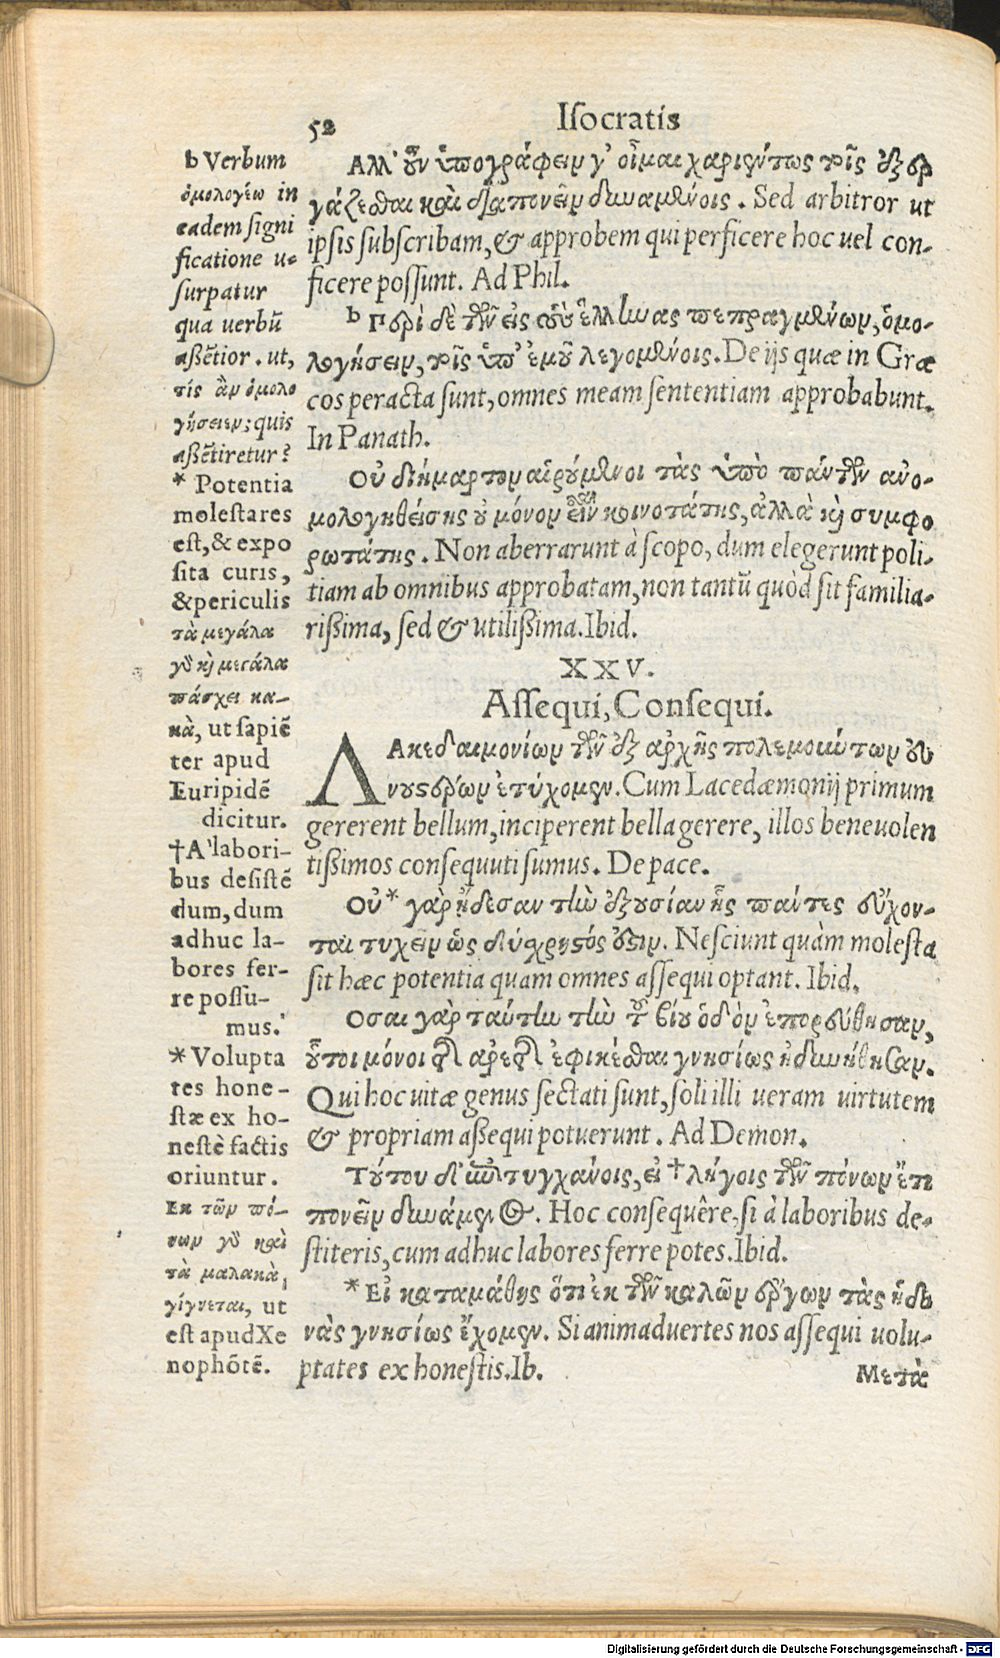 52
Iſocratis
Αλλ' οὖν ὑπογράφειν γ' οἶμαι χαριέντως τοῖς ἐξερ
γάζεσθαι καὶ διαπονεῖν δυναμένοις. Sed arbitror ut
ipſis ſubſcribam, & approbem qui perficere hoc uel con-
ficere poſſunt. Ad Phil.
b Περὶ δὲ τῶν εἰς τοὺς ἕλληνας πεπραγμένων, ὁμο-
λογήσειν, τοῖς ὑπ' ἐμοῦ λεγομένοις. De ijs quæ in Græ
cos peracta ſunt, omnes meam ſententiam approbabunt.
In Panath.
Οὐ διήμαρτον αἱρούμενοι τὰς ὑπὸ πάντων ἀνο-
μολογηθείσης οὐ μόνον εἶναι κοινοτάτης, ἀλλὰ καὶ συμφο
ρωτάτης. Non aberrarunt à ſcopo, dum elegerunt poli-
tiam ab omnibus approbatam, non tantũ quòd ſit familia-
rißima, ſed & utilißima. Ibid.
XXV.
Aſſequi, Conſequi.
ΛΑκεδαιμονίων τῶν ἐξ ἀρχῆς πολεμούντων εὐ
νουστέρων ἐτύχομεν. Cum Lacedæmonij primum
gererent bellum, inciperent bella gerere, illos beneuolen
tißimos conſequuti ſumus. De pace.
Οὐ* γὰρ ᾔδεσαν τὴν ἐξουσίαν ἧς πάντες εὔχον-
ται τυχεῖν ὡς δύσχρηστός ἐστιν. Neſciunt quàm moleſta
ſit hæc potentia quam omnes aſſequi optant. Ibid.
Οσοι γὰρ ταύτην τὴν τοῦ βίου ὁδὸν ἐπορεύθησαν,
οὗτοι μόνοι τῆς ἀρετῆς ἐφικέσθαι γνησίως ἠδυνήθησαν.
Qui hoc uitæ genus ſectati ſunt, ſoli illi ueram uirtutem
& propriam aßequi potuerunt. Ad Demon.
Τούτου δ' ἂν τυγχάνοις, εἰ † λήγοις τῶν πόνων ἔτι
πονεῖν δυνάμενος. Hoc conſequêre, ſi à laboribus de-
ſtiteris, cum adhuc labores ferre potes. Ibid.
*Εἰ καταμάθης ὅτι ἐκ τῶν καλῶν ἔργων τὰς ἡδο
νὰς γνησίως ἔχομεν. Si animaduertes nos aſſequi uolu-
ptates ex honeſtis. Ib.
Μετὰ
b Verbum
ὁμολογέω in
eadem ſigni
ficatione u-
ſurpatur
qua uerbũ
aßẽtior. ut,
τίς ἂν ὁμολο
γήσειεν; quis
aßẽtiretur?
* Potentia
moleſta res
eſt, & expo
ſita curis,
& periculis
τὰ μεγάλα
γὰρ καὶ μεγάλα
πάσχει κα-
κὰ, ut ſapiẽ
ter apud
Euripidẽ
dicitur.
†A' labori-
bus deſiſtẽ
dum, dum
adhuc la-
bores fer-
re poſſu-
mus.
*Volupta
tes hone-
ſtæ ex ho-
neſtè factis
oriuntur.
Εκ τῶν πό-
νων γὰρ καὶ
τὰ μαλακὰ,
γίγνεται, ut
eſt apud Xe
nophõtẽ.
Digitalisierung gefördert durch die Deutsche Forschungsgemeinschaft - DFG